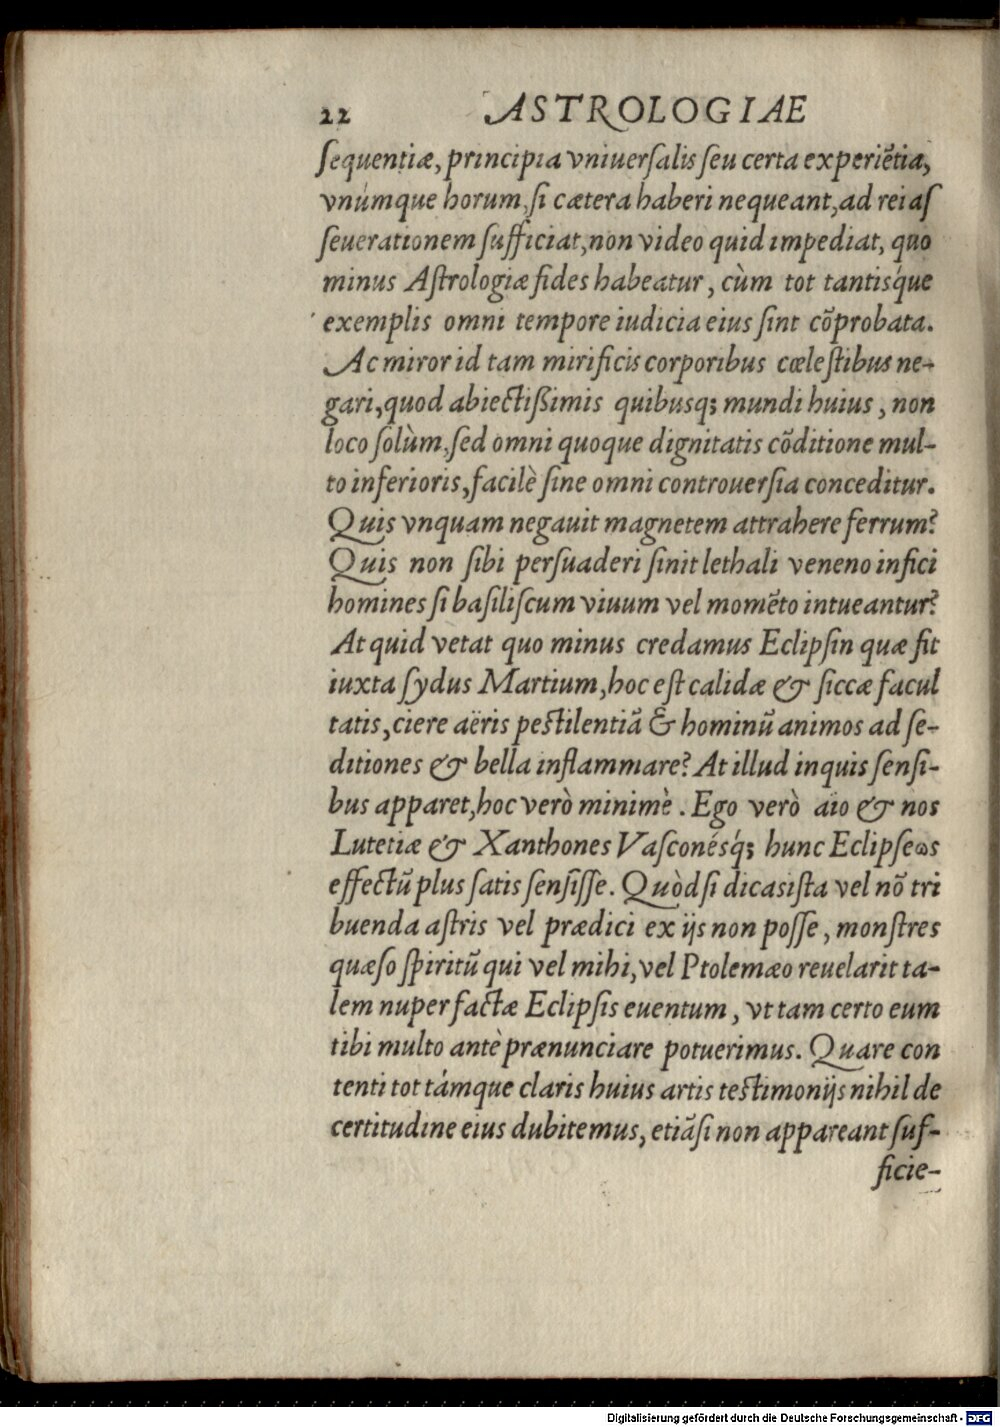 22 ASTROLOGIAE
ſequentiæ, principia vniuerſalis ſeu certa experiẽtia,
vnúmque horum, ſi cætera haberi nequeant, ad rei aſ
ſeuerationem ſufficiat, non video quid impediat, quo
minus Aſtrologiæ fides habeatur, cùm tot tantiſq́ue
exemplis omni tempore iudicia eius ſint cõprobata.
Ac miror id tam mirificis corporibus cœleſtibus ne-
gari, quod abiectißimis quibusq; mundi huius, non
loco ſolùm, ſed omni quoque dignitatis cõditione mul-
to inferioris, facilè ſine omni controuerſia conceditur.
Quis vnquam negauit magnetem attrahere ferrum?
Quis non ſibi perſuaderi ſinit lethali veneno infici
homines ſi baſiliſcum viuum vel momẽto intueantur?
At quid vetat quo minus credamus Eclipſin quæ fit
iuxta ſydus Martium, hoc eſt calidæ & ſiccæ facul
tatis, ciere aëris peſtilentiã & hominũ animos ad ſe-
ditiones & bella inflammare? At illud inquis ſenſi-
bus apparet, hoc verò minimè. Ego verò aio & nos
Lutetiæ & Xanthones Vaſconésq́; hunc Eclipſeωs
effectũ plus ſatis ſenſiſſe. Quòd ſi dicas iſta vel nõ tri
buenda aſtris vel prædici ex ijs non poſſe, monſtres
quæſo ſpiritũ qui vel mihi, vel Ptolemæo reuelarit ta-
lem nuper factæ Eclipſis euentum, vt tam certo eum
tibi multo antè prænunciare potuerimus. Quare con
tenti tot támque claris huius artis teſtimonijs nihil de
certitudine eius dubitemus, etiãſi non appareant ſuf-
ficie-
Digitalisierung gefördert durch die Deutsche Forschungsgemeinschaft - DFG